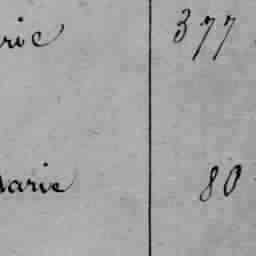 rie 377
Marie 80